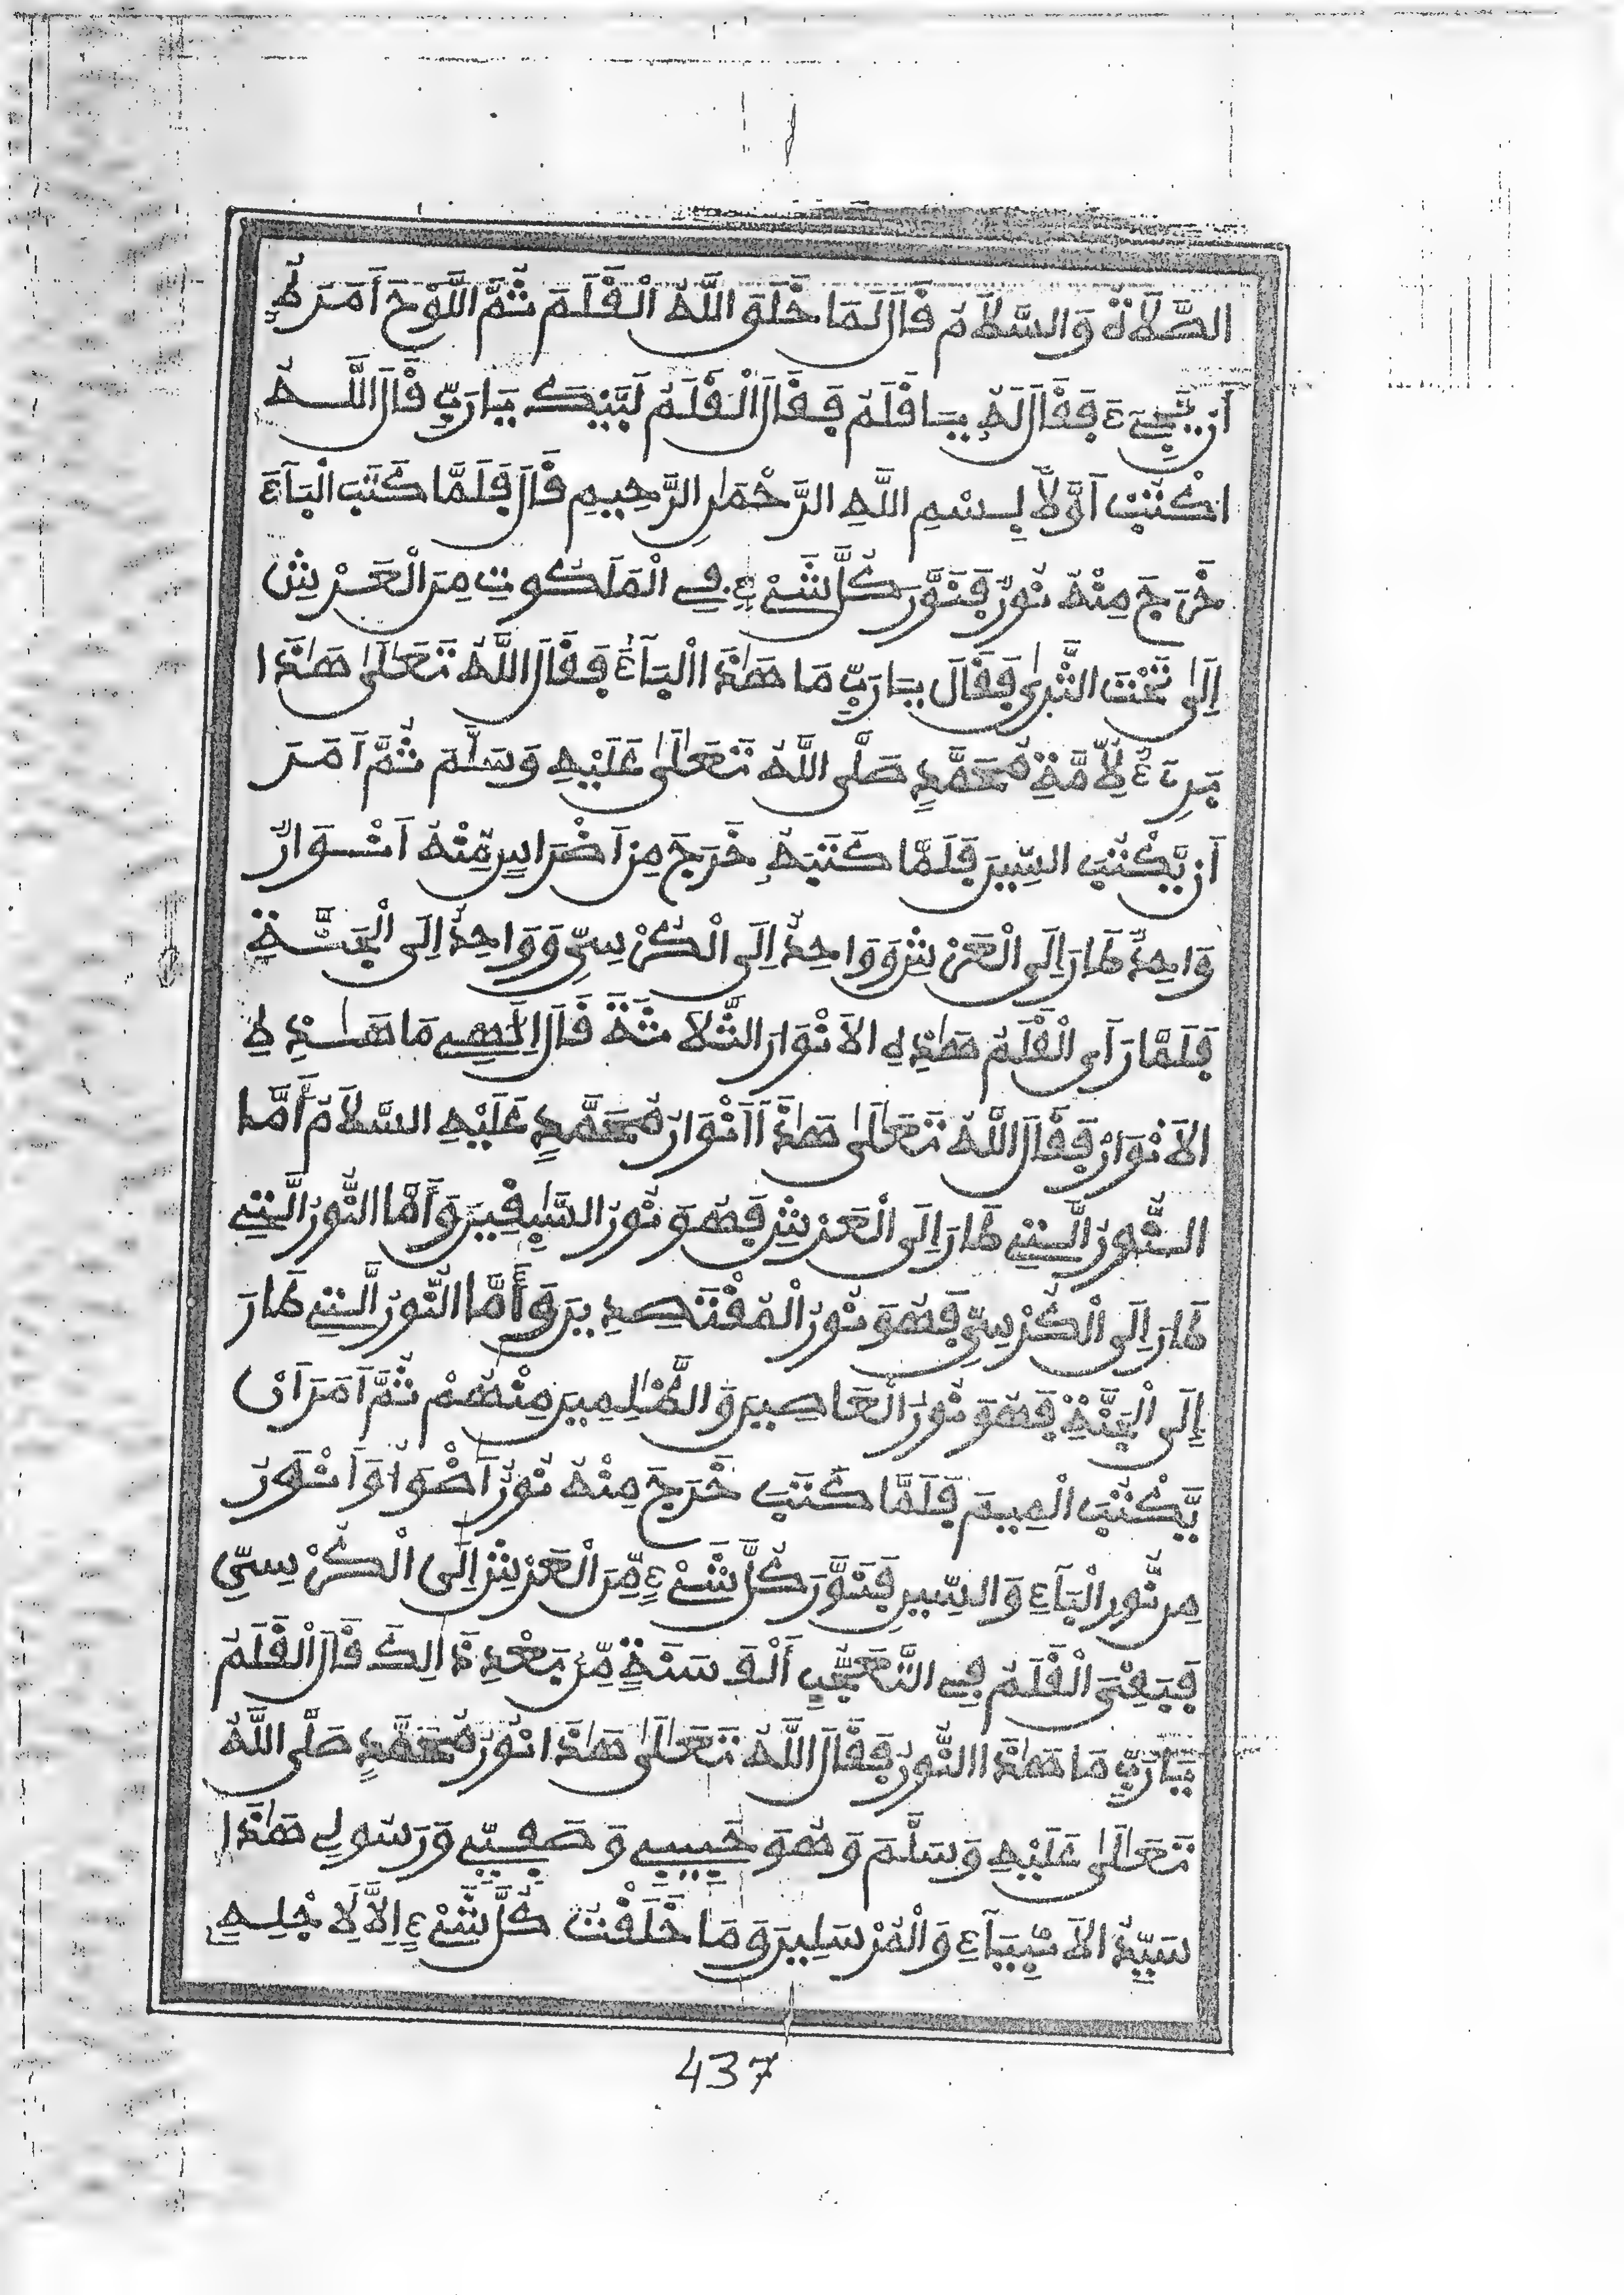 الصَّلَاةُ وَالسَّلَامُ قَالَ لَمَا خَلَقَ اللَّهُ الْقَلَمَ ثُمَّ اللَّوْحَ أَمَرَ لَهُ
أَن يَّجِيءَ فَقَالَ لَهُ يَا قَلَمُ فَقَالَ الْقَلَمُ لَبَّيْكَ يَا رَبِّ قَالَ اللَّهُ
اكْتُبْ أَوَّلًا بِسْمِ اللَّهِ الرَّحْمَنِ الرَّحِيمِ قَالَ فَلَمَّا كَتَبَ الْبَاءَ
خَرَجَ مِنْهُ نُورٌ فَنَوَّرَ كُلَّ شَيْءٍ فِي الْمَلَكُوتِ مِنَ الْعَرْشِ
إِلَى تَحْتَ الثَّرَى فَقَالَ يَا رَبِّ مَا هَذَا الْبَاءُ فَقَالَ اللَّهُ تَعَالَى هَذَا
بَرِيءٌ لِأُمَّةِ مُحَمَّدٍ صَلَّى اللَّهُ تَعَالَى عَلَيْهِ وَسَلَّمَ ثُمَّ أَمَرَ
أَن يَّكْتُبَ السِّينَ فَلَمَّا كَتَبَهُ خَرَجَ مِنْ أَضْرَاسٍ مِّنْهُ أَنْوَارٌ
وَاحِدٌ طَارَ إِلَى الْعَرْشِ وَوَاحِدٌ إِلَى الْكُرْسِيِّ وَوَاحِدٌ إِلَى الْجَنَّةِ
فَلَمَّا رَأَى الْقَلَمُ هَذِهِ الْأَنْوَارَ الثَّلَاثَةَ قَالَ إِلَهِي مَا هَذِهِ
الْأَنْوَارُ فَقَالَ اللَّهُ تَعَالَى هَذَا أَنْوَارُ مُحَمَّدٍ عَلَيْهِ السَّلَامُ أَمَّا
النُّورُ الَّتِي طَارَ إِلَى الْعَرْشِ فَهُوَ نُورُ السَّابِقِينَ وَأَمَّا النُّورُ الَّتِي
طَارَ إِلَى الْكُرْسِيِّ فَهُوَ نُورُ الْمُقْتَصِدِينَ وَأَمَّا النُّورُ الَّتِي طَارَ
إِلَى الْجَنَّةِ فَهُوَ نُورُ الْعَاصِينَ وَالظَّالِمِينَ مِنْهُمْ ثُمَّ أَمَرَ أَنْ
يَّكْتُبَ الْمِيمَ فَلَمَّا كَتَبَ خَرَجَ مِنْهُ نُورٌ أَضْوَا وَأَنْوَرُ
مِن نُّورِ الْبَاءِ وَالسِّينِ فَنَوَّرَ كُلَّ شَيْءٍ مِّنَ الْعَرْشِ إِلَى الْكُرْسِيِّ
فَبَقِيَ الْقَلَمُ فِي التَّعَجُّبِ أَلْفَ سَنَةٍ مِّنْ بَعْدِ ذَالِكَ قَالَ الْقَلَمُ
يَا رَبِّ مَا هَذَا النُّورُ فَقَالَ اللَّهُ تَعَالَى هَذَا نُورُ مُحَمَّدٍ صَلَّى اللَّهُ
تَعَالَى عَلَيْهِ وَسَلَّمَ وَهُوَ حَبِيبِي وَصَفِيِّي وَرَسُولِي هَذَا
سَيِّدُ الْأَنْبِيَاءِ وَالْمُرْسَلِينَ وَمَا خَلَقْتُ كُلَّ شَيْءٍ إِلَّا لِأَجْلِهِ
437